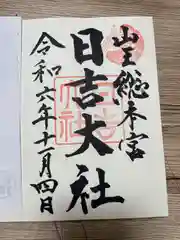 山王總本宮
日吉大社
令和六年十一月四日